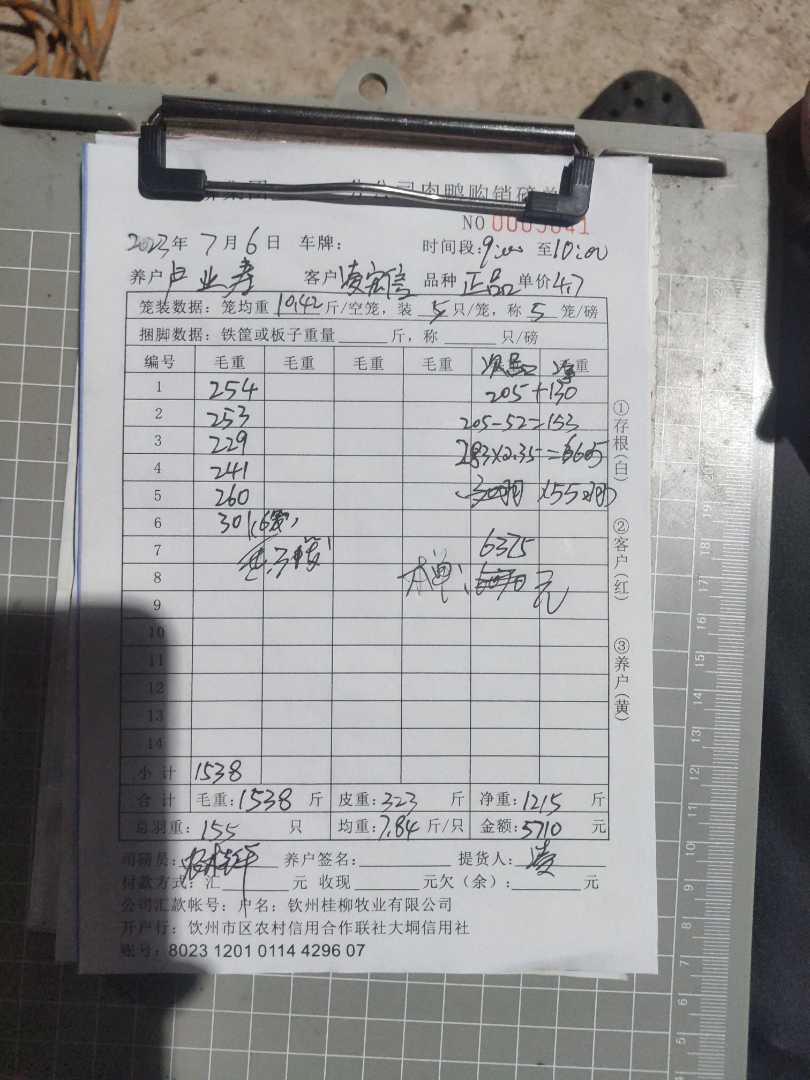 公司肉鸭购销磅单
NO
2023年 7月6日 车牌: 时间段:9:00 至10:00
养户 卢业寿 客户 凌宏信 品种 正品 单价4.7
笼装数据: 笼均重 10.42 斤/空笼, 装 5 只/笼, 称 5 笼/磅
捆脚数据: 铁筐或板子重量 斤, 称 只/磅
编号 毛重 毛重 毛重 毛重 重
1 254 205+130
2 253 205-52=153
3 229 283×2.35=
4 241
5 260
6 301(6笼)
7 6375
8 本单: 元
9
10
11
12
13
14
小计 1538
合计 毛重:1538 斤 皮重:323 斤 净重:1215 斤
总羽重: 155 只 均重:7.84 斤/只 金额:5710 元
司磅员: 养户签名: 提货人: 凌
付款方式: 汇 元 收现 元欠(余): 元
公司汇款帐号: 户名: 钦州桂柳牧业有限公司
开户行: 钦州市区农村信用合作联社大垌信用社
账号: 8023 1201 0114 4296 07
①存根(白)
②客户(红)
③养户(黄)